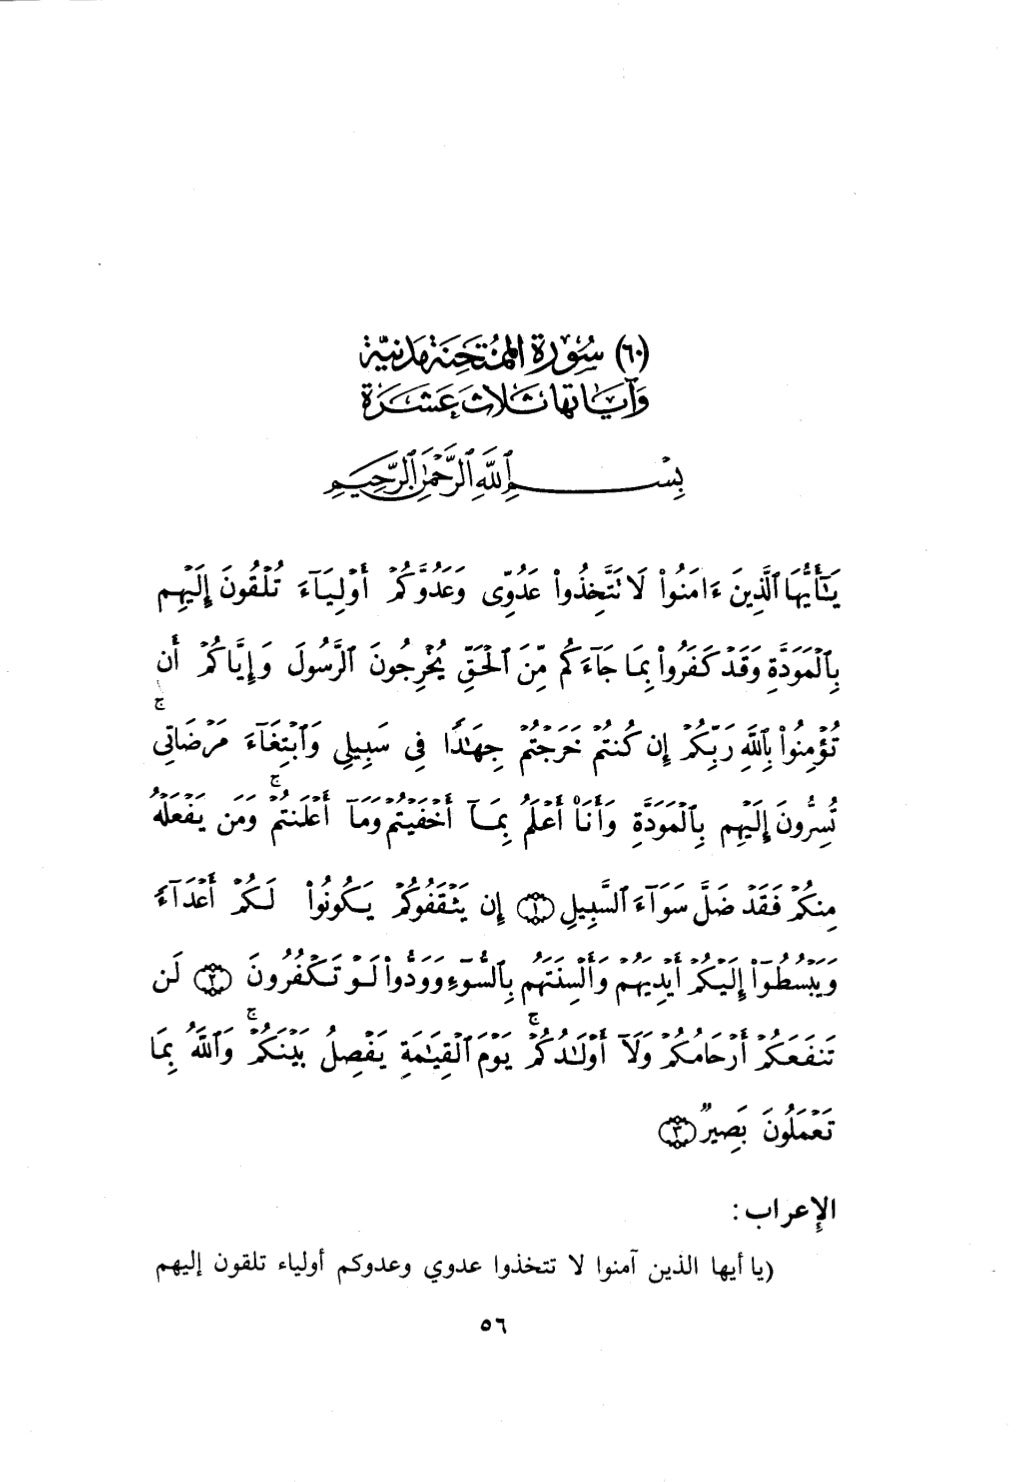 (٦٠) سُورَة الممُتَحِنَة مَدَنيّة
وَآيَاتهَا ثَلَاثَ عَشَرَة
بِسْمِ ٱللَّهِ ٱلرَّحْمَٰنِ ٱلرَّحِيمِ
يَٰٓأَيُّهَا ٱلَّذِينَ ءَامَنُوا۟ لَا تَتَّخِذُوا۟ عَدُوِّى وَعَدُوَّكُمْ أَوْلِيَآءَ تُلْقُونَ إِلَيْهِم
بِٱلْمَوَدَّةِ وَقَدْ كَفَرُوا۟ بِمَا جَآءَكُم مِّنَ ٱلْحَقِّ يُخْرِجُونَ ٱلرَّسُولَ وَإِيَّاكُمْ أَن
تُؤْمِنُوا۟ بِٱللَّهِ رَبِّكُمْ إِن كُنتُمْ خَرَجْتُمْ جِهَٰدًا فِى سَبِيلِى وَٱبْتِغَآءَ مَرْضَاتِى ۚ
تُسِرُّونَ إِلَيْهِم بِٱلْمَوَدَّةِ وَأَنَا۠ أَعْلَمُ بِمَآ أَخْفَيْتُمْ وَمَآ أَعْلَنتُمْ ۚ وَمَن يَفْعَلْهُ
مِنكُمْ فَقَدْ ضَلَّ سَوَآءَ ٱلسَّبِيلِ ١ إِن يَثْقَفُوكُمْ يَكُونُوا۟ لَكُمْ أَعْدَآءً
وَيَبْسُطُوٓا۟ إِلَيْكُمْ أَيْدِيَهُمْ وَأَلْسِنَتَهُم بِٱلسُّوٓءِ وَوَدُّوا۟ لَوْ تَكْفُرُونَ ٢ لَن
تَنفَعَكُمْ أَرْحَامُكُمْ وَلَآ أَوْلَٰدُكُمْ ۚ يَوْمَ ٱلْقِيَٰمَةِ يَفْصِلُ بَيْنَكُمْ ۚ وَٱللَّهُ بِمَا
تَعْمَلُونَ بَصِيرٌ ٣
الإعراب:
(يا أيها الذين آمنوا لا تتخذوا عدوي وعدوكم أولياء تلقون إليهم
٥٦